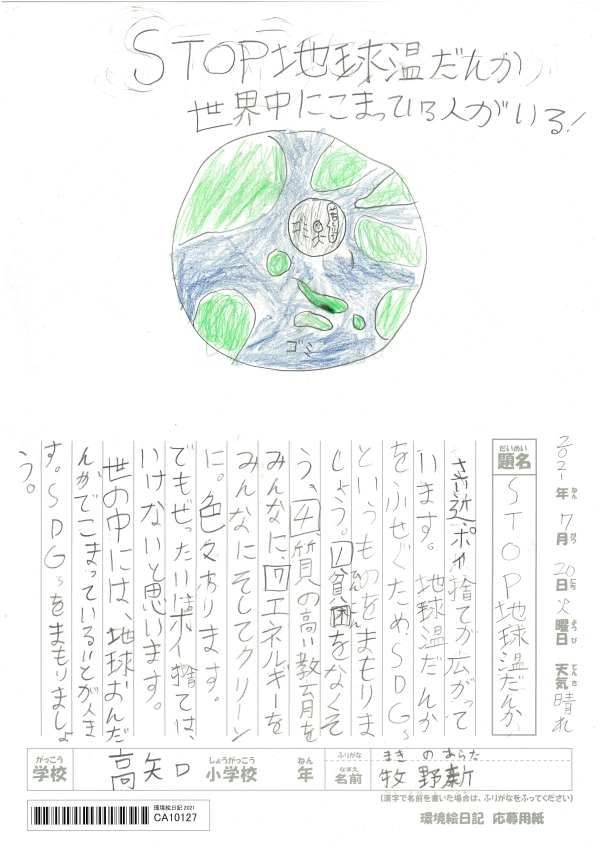 STOP地球温だんか
世界中にこまっている人がいる!
ゴミ
2021年7月20日火曜日 天気晴れ
ねん がつ にち ようび てんき
だいめい
題名
STOP地球温だんか
さい近ポイ捨てが広がって
います。地球温だんか
をふせぐため、SDGs
というものをまもりま
しょう。1貧困をなくそ
う、4質の高い教育を
みんなに、7エネルギーを
みんなにそしてクリーン
に。色々あります。
でもぜったいにポイ捨ては、
いけないと思います。
世の中には、地球おんだ
んかでこまっているいとがんき
す。SDGsをまもりましょ
う。
がっこう しょうがっこう ねん
学校 高矢口 小学校 年
ふりがな まきのあらた
なまえ
名前 牧野新
(漢字で名前を書いた場合は、ふりがなをふってください)
環境絵日記 2021
CA10127
環境絵日記 応募用紙